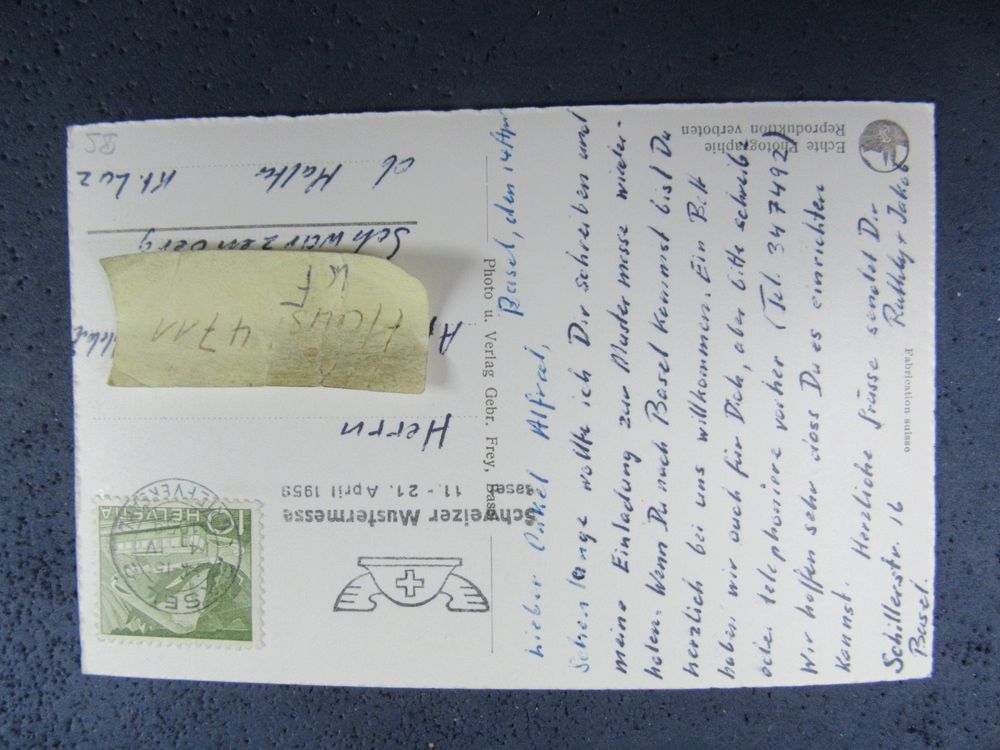 Basel, den 14 Apr
Lieber Onkel Alfred,
Schon lange wollte ich Dir schreiben und
meine Einladung zur Mustermesse wieder-
holen. Wenn Du nach Basel kommst bist Du
herzlich bei uns willkommen. Ein Bett
haben wir auch für Dich, aber bitte schreib
oder telephoniere vorher (Tel. 347492)
Wir hoffen sehr dass Du es einrichten
kannst. Herzliche Grüsse sendet Dir
Schillerstr. 16 Ruthly + Jakob
Basel.
Echte Photographie
Reproduktion verboten
Fabrication suisse
Photo u. Verlag Gebr. Frey, Basel
Schweizer Mustermesse
Basel
11. - 21. April 1959
HELVETIA
10
Herrn
4711
Schwarzenberg
ob Malters Kt. Luz